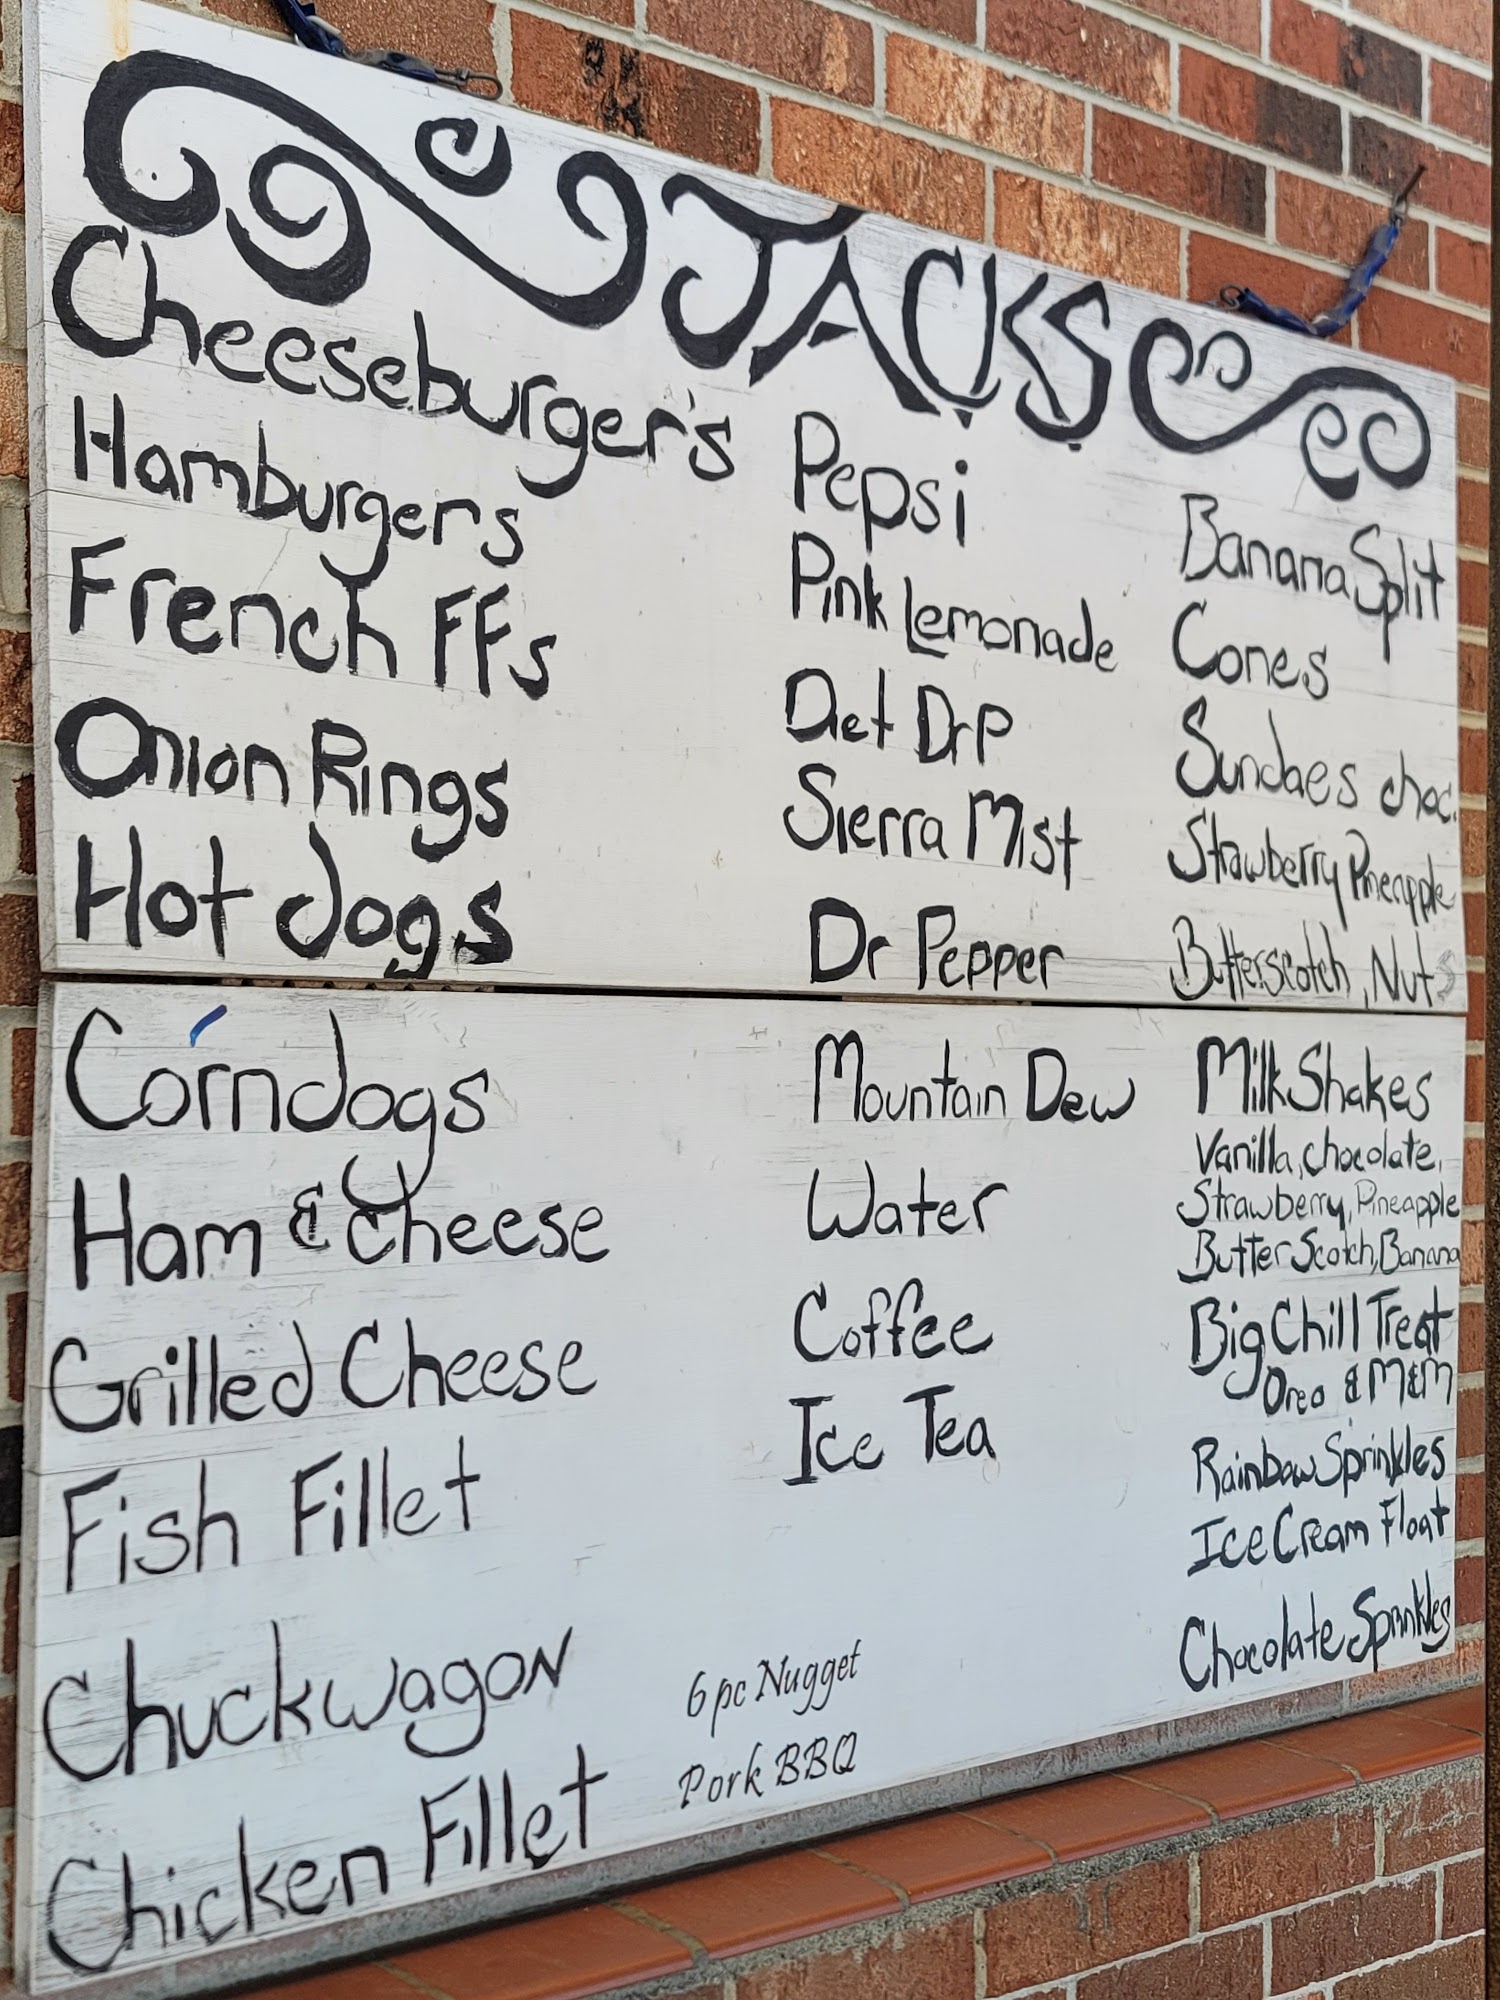 JACKS
Cheeseburger's
Hamburgers
French FFs
Onion Rings
Hot dogs
Corndogs
Ham & Cheese
Grilled Cheese
Fish Fillet
Chuckwagon
Chicken Fillet
Pepsi
Pink Lemonade
Diet DrP
Sierra Mist
Dr Pepper
Mountain Dew
Water
Coffee
Ice Tea
6 pc Nugget
Pork BBQ
Banana Split
Cones
Sundaes choc.
Strawberry Pineapple
Butterscotch, Nuts
MilkShakes
Vanilla, chocolate,
Strawberry, Pineapple
Butter Scotch, Banana
Big Chill Treat
Oreo & M&M
Rainbow Sprinkles
Ice Cream Float
Chocolate Sprinkles